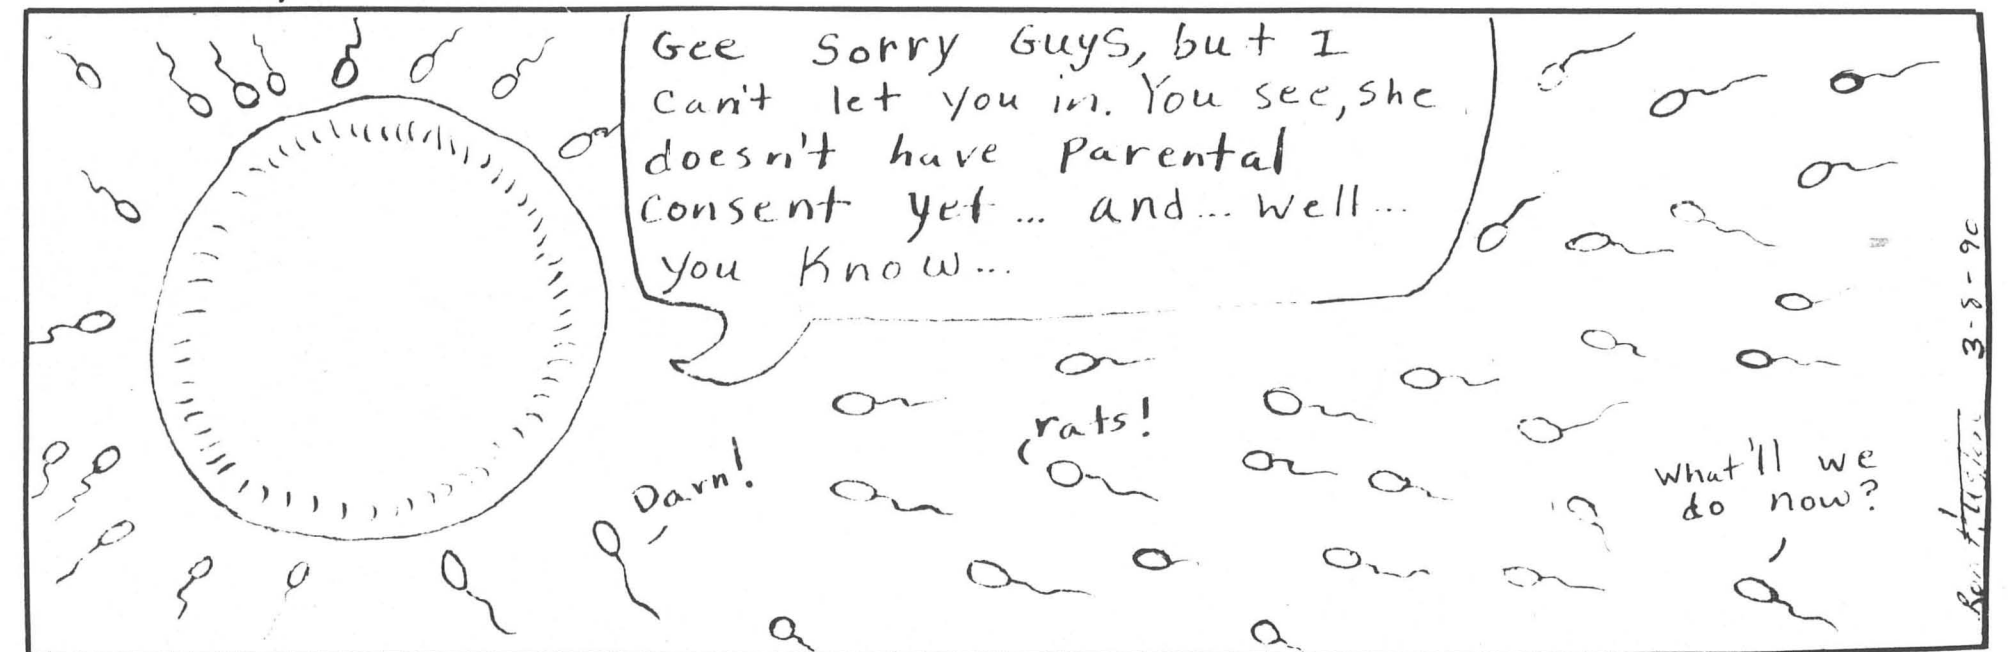 Gee Sorry Guys, but I
can't let you in. You see, she
doesn't have parental
consent yet... and... well...
you know...
Darn!
rats!
What'll we
do now?